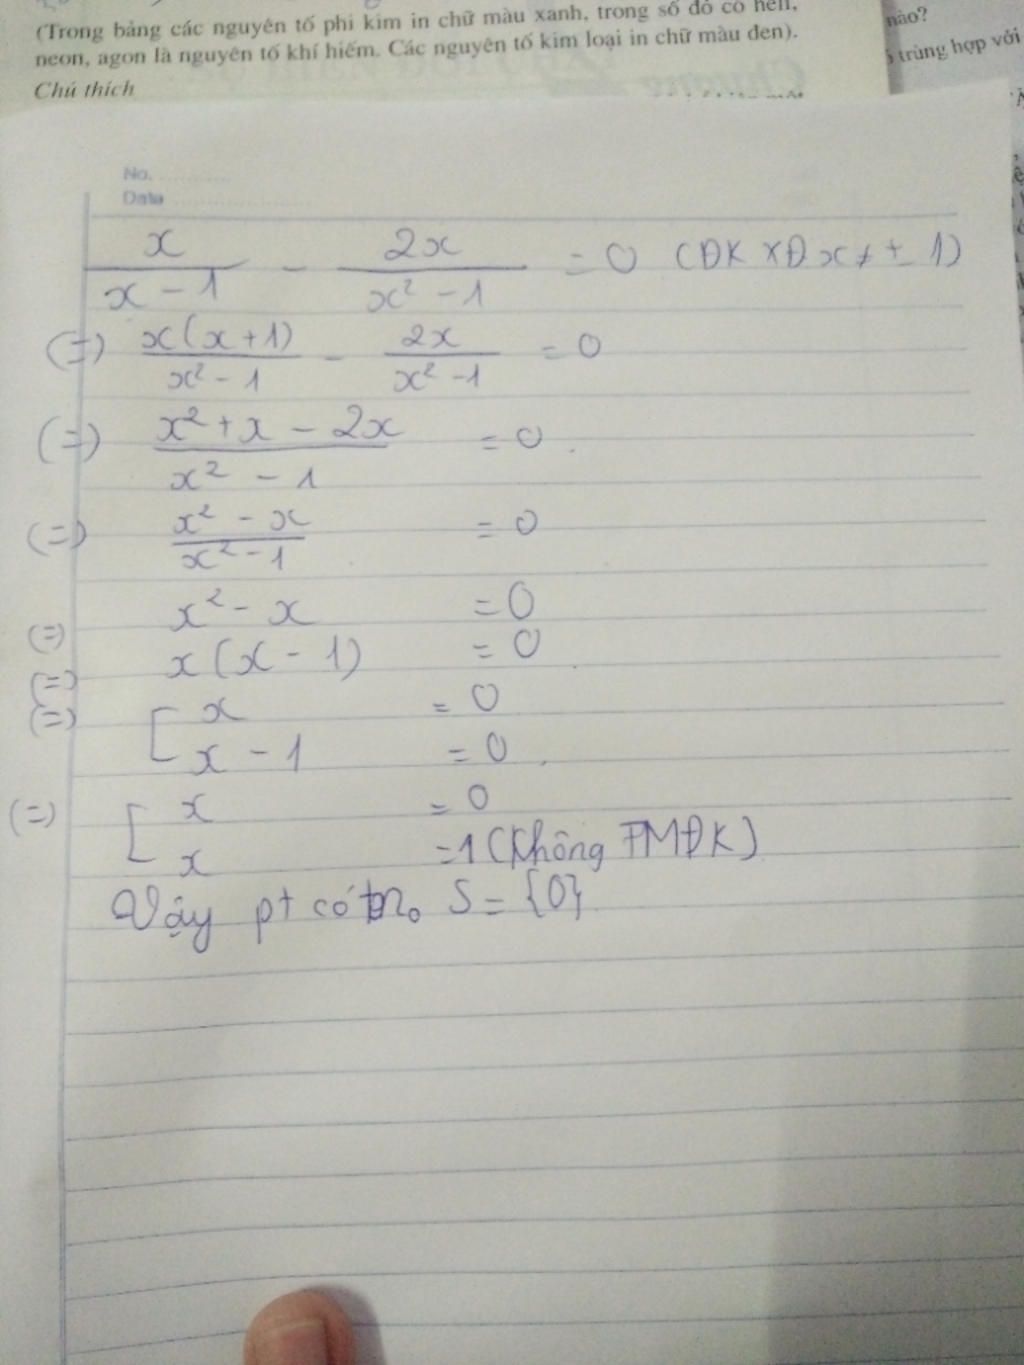 (Trong bảng các nguyên tố phi kim in chữ màu xanh, trong số đó có heli,
neon, agon là nguyên tố khí hiếm. Các nguyên tố kim loại in chữ màu đen).
Chú thích
nào?
trùng hợp với
No. ............
Date ........................
x/(x - 1) - 2x/(x² - 1) = 0 (ĐKXĐ x ≠ ± 1)
(=) x(x + 1)/(x² - 1) - 2x/(x² - 1) = 0
(=) (x² + x - 2x)/(x² - 1) = 0.
(=) (x² - x)/(x² - 1) = 0
(=) x² - x = 0
(=) x(x - 1) = 0
(=) [ x = 0
x - 1 = 0.
(=) [ x = 0
x = 1 (Không TMĐK)
Vậy pt có S = {0}